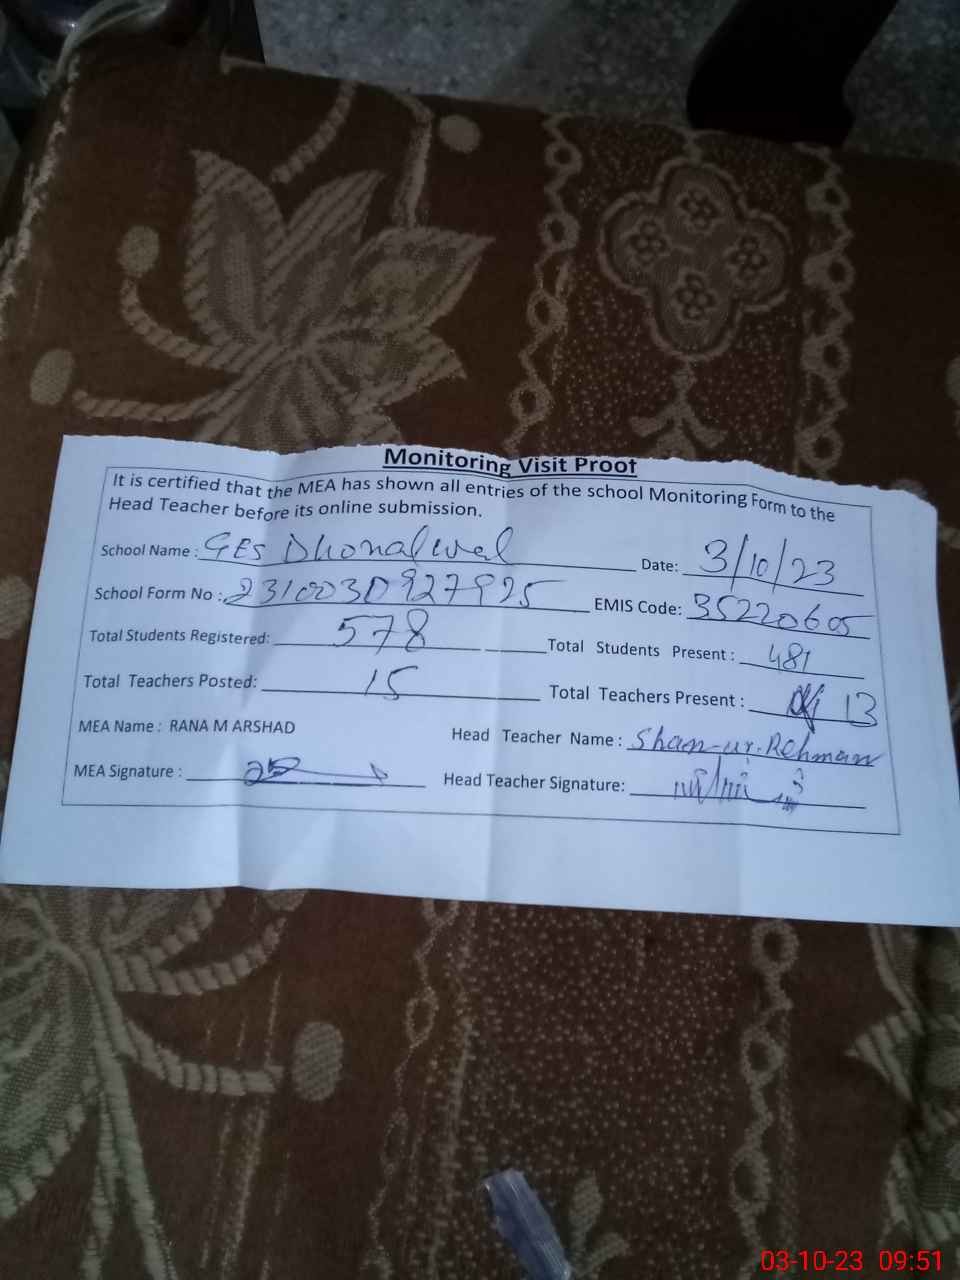 Monitoring Visit Proof
It is certified that the MEA has shown all entries of the school Monitoring Form to the
Head Teacher before its online submission.
School Name : GES Dhonalwal Date: 3/10/23
School Form No : 2310030927925 EMIS Code: 35220605
Total Students Registered: 578 Total Students Present : 481
Total Teachers Posted: 15 Total Teachers Present : 13
MEA Name : RANA M ARSHAD Head Teacher Name : Shan-ur-Rehman
MEA Signature : Head Teacher Signature:
03-10-23 09:51